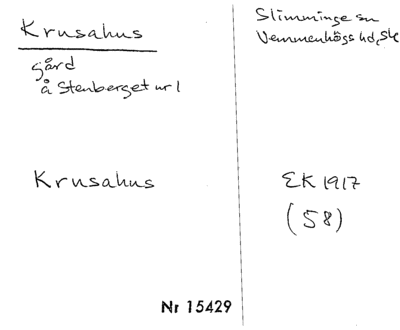 Krusahus
gård
å Stenberget nr 1
Krusahus
Slimminge sn
Vemmenhögs hd, Sk
EK 1917
(58)
Nr 15429